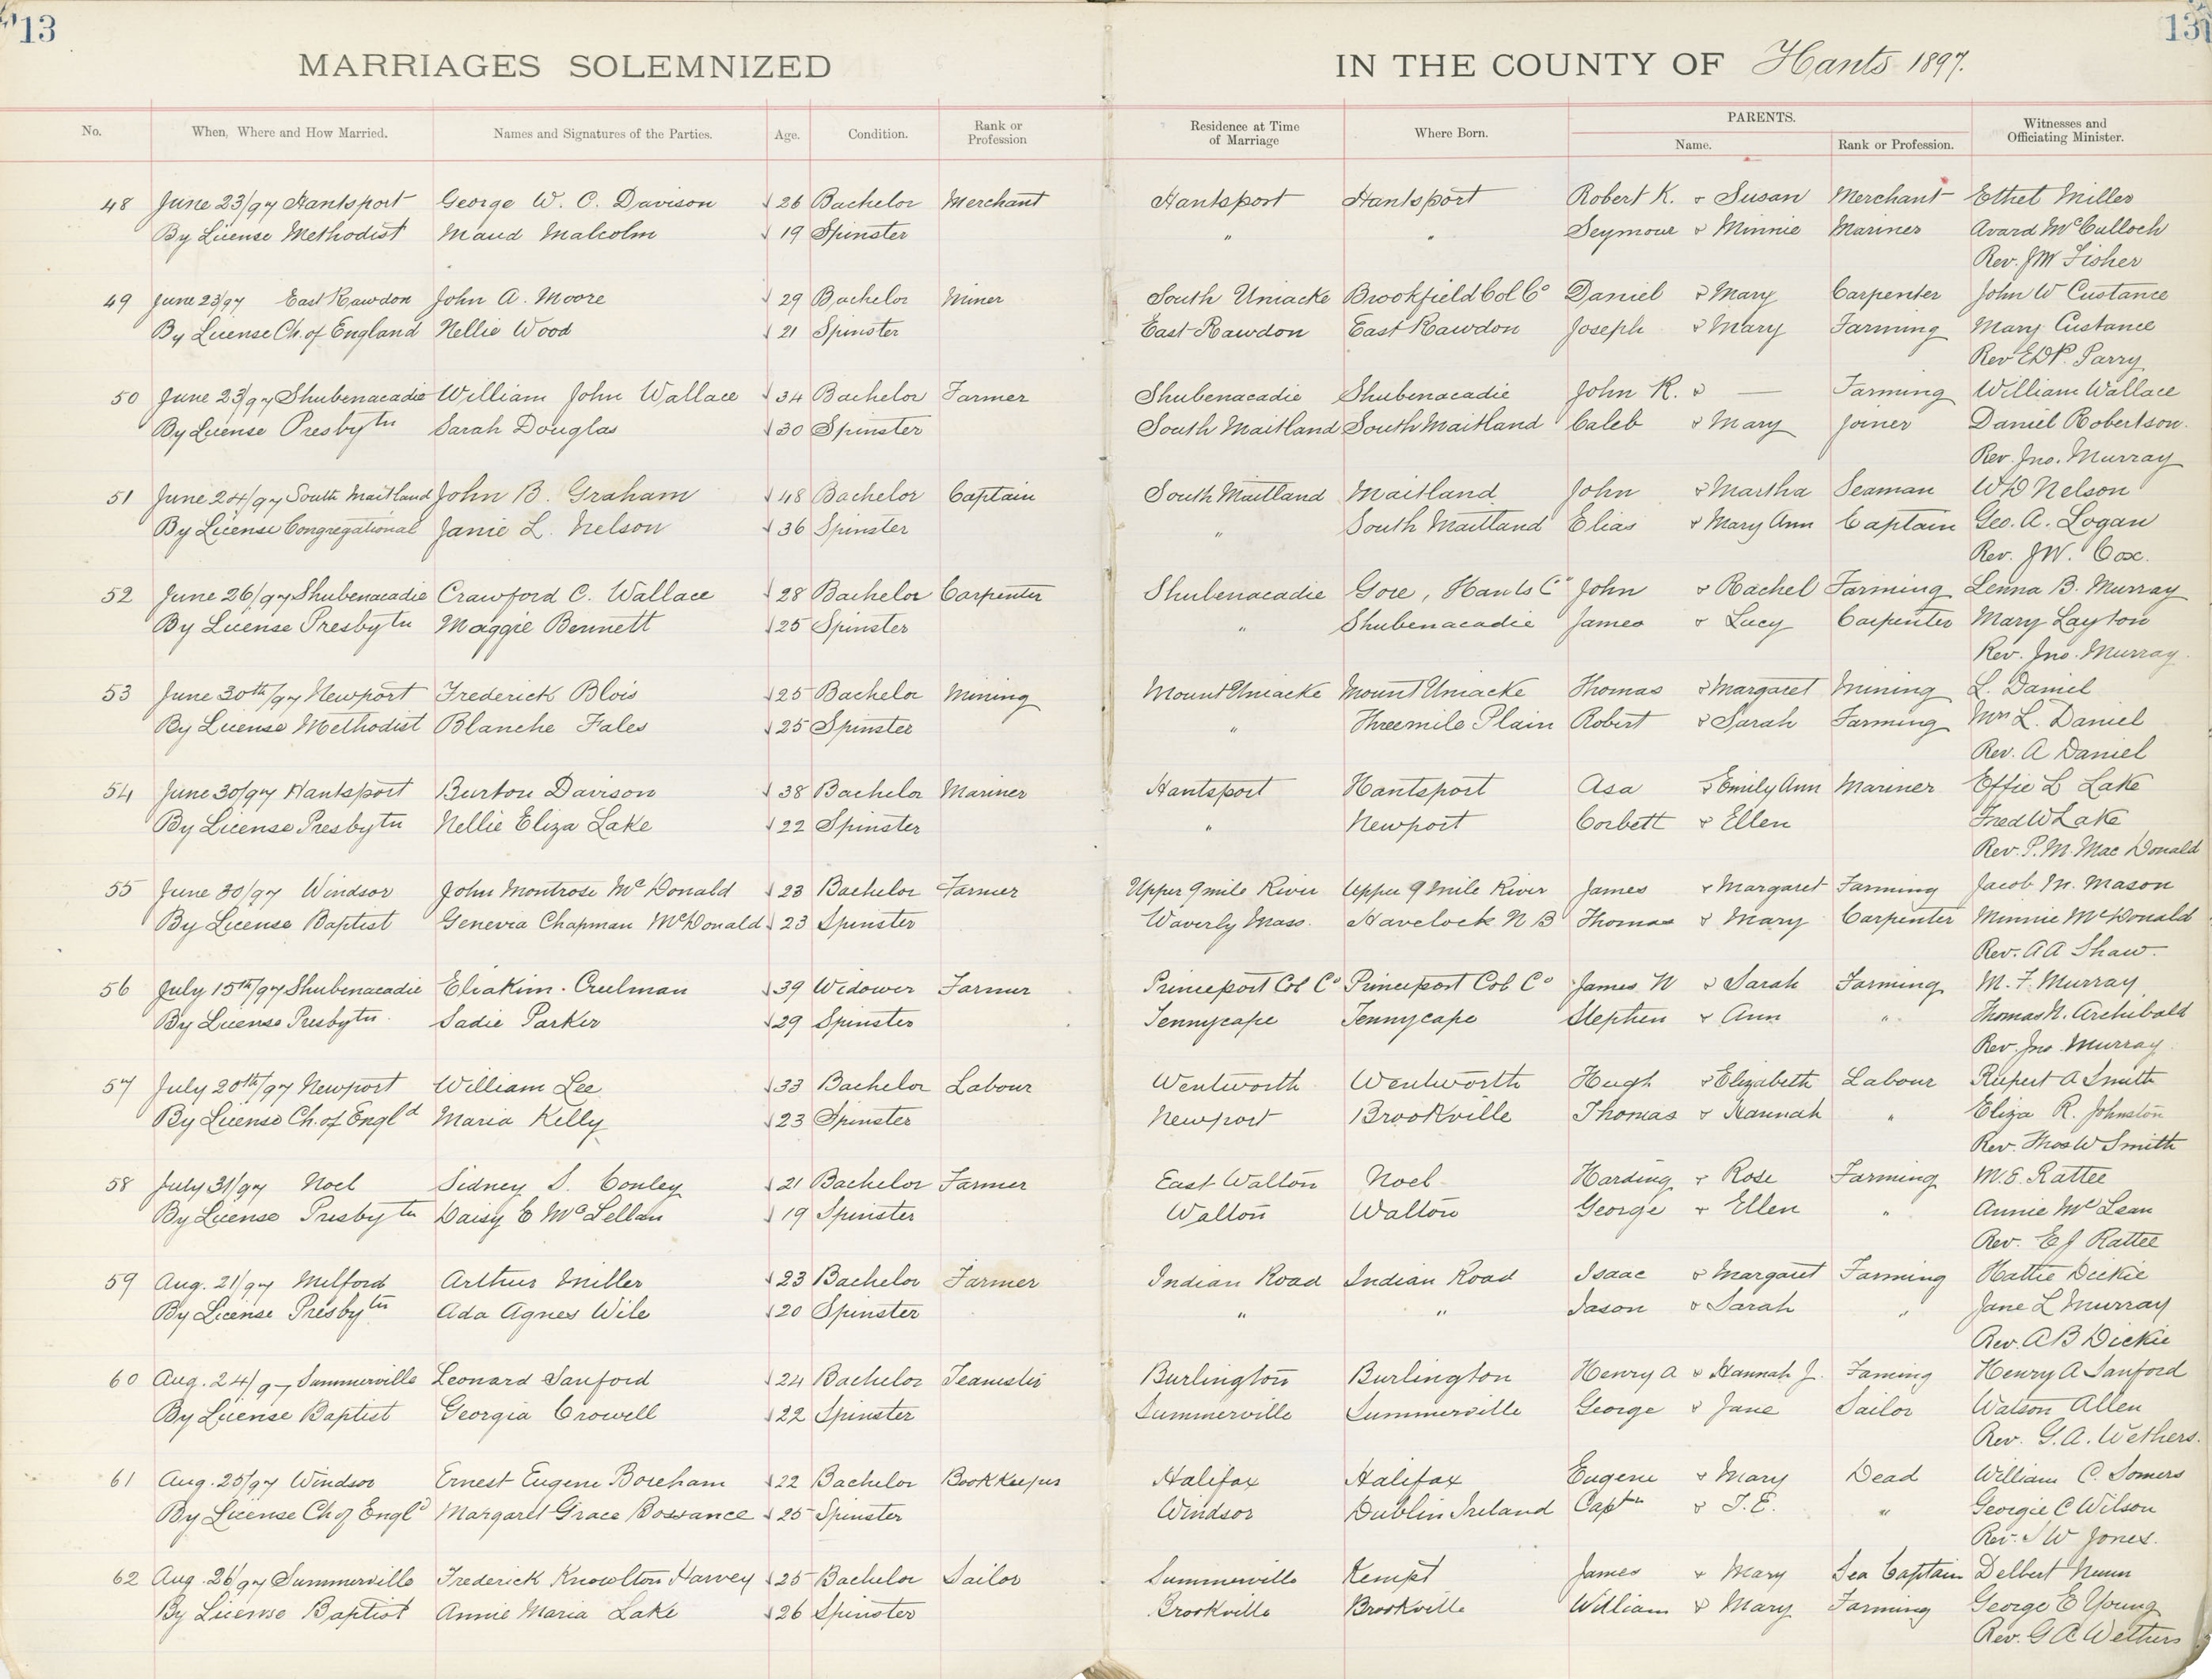 13
131
MARRIAGES SOLEMNIZED IN THE COUNTY OF Hants 1897.
No. When, Where and How Married. Names and Signatures of the Parties. Age. Condition. Rank or Profession Residence at Time of Marriage Where Born. PARENTS. Name. Rank or Profession. Witnesses and Officiating Minister.
48 June 23/97 Hantsport George W. C. Davison 26 Bachelor Merchant Hantsport Hantsport Robert K. & Susan Merchant Ethel Miller
By License Methodist Maud Malcolm 19 Spinster " " Seymour & Minnie Mariner Avard McCulloch
Rev. JW Fisher
49 June 23/97 East Rawdon John A. Moore 29 Bachelor Miner South Uniacke Brookfield Col Co Daniel & Mary Carpenter John W Custance
By License Ch. of England Nellie Wood 21 Spinster East Rawdon East Rawdon Joseph & Mary Farming Mary Custance
Rev E D P. Parry
50 June 23/97 Shubenacadie William John Wallace 34 Bachelor Farmer Shubenacadie Shubenacadie John R. & — Farming William Wallace
By License Presbytn Sarah Douglas 30 Spinster South Maitland South Maitland Caleb & Mary Joiner Daniel Robertson.
Rev. Jno. Murray
51 June 24/97 South Maitland John B. Graham 48 Bachelor Captain South Maitland Maitland John & Martha Seaman W D Nelson
By License Congregational Janie L. Nelson 36 Spinster " South Maitland Elias & Mary Ann Captain Geo. A. Logan
Rev. JW. Cox.
52 June 26/97 Shubenacadie Crawford C. Wallace 28 Bachelor Carpenter Shubenacadie Gore, Hants Co John & Rachel Farming Lenna B. Murray
By License Presbytn Maggie Bennett 25 Spinster " Shubenacadie James & Lucy Carpenter Mary Layton
Rev. Jno. Murray.
53 June 30th/97 Newport Frederick Blois 25 Bachelor Mining Mount Uniacke Mount Uniacke Thomas & Margaret Mining L. Daniel
By License Methodist Blanche Fales 25 Spinster " Threemile Plain Robert & Sarah Farming Mrs L. Daniel
Rev. A Daniel
54 June 30/97 Hantsport Burton Davison 38 Bachelor Mariner Hantsport Hantsport Asa & Emily Ann Mariner Effie L Lake
By License Presbytn Nellie Eliza Lake 22 Spinster " Newport Corbett & Ellen Fred W Lake
Rev. P. M. MacDonald
55 June 30/97 Windsor John Montrose McDonald 23 Bachelor Farmer Upper 9 mile River Upper 9 Mile River James & Margaret Farming Jacob M. Mason
By License Baptist Genevia Chapman McDonald 23 Spinster Waverly Mass. Havelock N B Thomas & Mary Carpenter Minnie McDonald
Rev. A A Shaw.
56 July 15th/97 Shubenacadie Eliakim Creelman 39 Widower Farmer Princeport Col Co Princeport Col Co James N & Sarah Farming M. F. Murray
By License Presbytn. Sadie Parker 29 Spinster Tennycape Tennycape Stephen & Ann " Thomas N. Archibald
Rev. Jno. Murray
57 July 20th/97 Newport William Lee 33 Bachelor Labour Wentworth Wentworth Hugh & Elizabeth Labour Rupert A Smith
By License Ch. of Engld Maria Kelly 23 Spinster Newport Brookville Thomas & Hannah " Eliza R. Johnston
Rev. Thos W Smith
58 July 31/97 Noel Sidney S. Conley 21 Bachelor Farmer East Walton Noel Harding & Rose Farming M. E. Rattee
By License Presbytn Daisy E McLellan 19 Spinster Walton Walton George & Ellen " Annie McLean
Rev. E J Rattee
59 Aug. 21/97 Milford Arthur Miller 23 Bachelor Farmer Indian Road Indian Road Isaac & Margaret Farming Hattie Dickie
By License Presbytn Ada Agnes Wile 20 Spinster " " Jason & Sarah " Jane L Murray
Rev. A B Dickie
60 Aug. 24/97 Summerville Leonard Sanford 24 Bachelor Teamster Burlington Burlington Henry A & Hannah J. Faming Henry A Sanford
By License Baptist Georgia Crowell 22 Spinster Summerville Summerville George & Jane Sailor Watson Allen
Rev. G. A. Wethers.
61 Aug. 25/97 Windsor Ernest Eugene Boreham 22 Bachelor BookKeeper Halifax Halifax Eugene & Mary Dead William C. Somers
By License Ch of Engld Margaret Grace Bossance 25 Spinster Windsor Dublin Ireland Captn & T. E. " Georgie C Wilson
Rev. J W Jones.
62 Aug. 26/97 Summerville Frederick Knowlton Harvey 25 Bachelor Sailor Summerville Kempt James & Mary Sea Captain Delbert Nunn
By License Baptist Annie Maria Lake 26 Spinster Brookville Brookville William & Mary Farming George E Young
Rev. G A Wethers